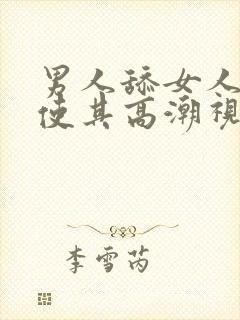 男人舔女人
使其高潮視
李雪芮